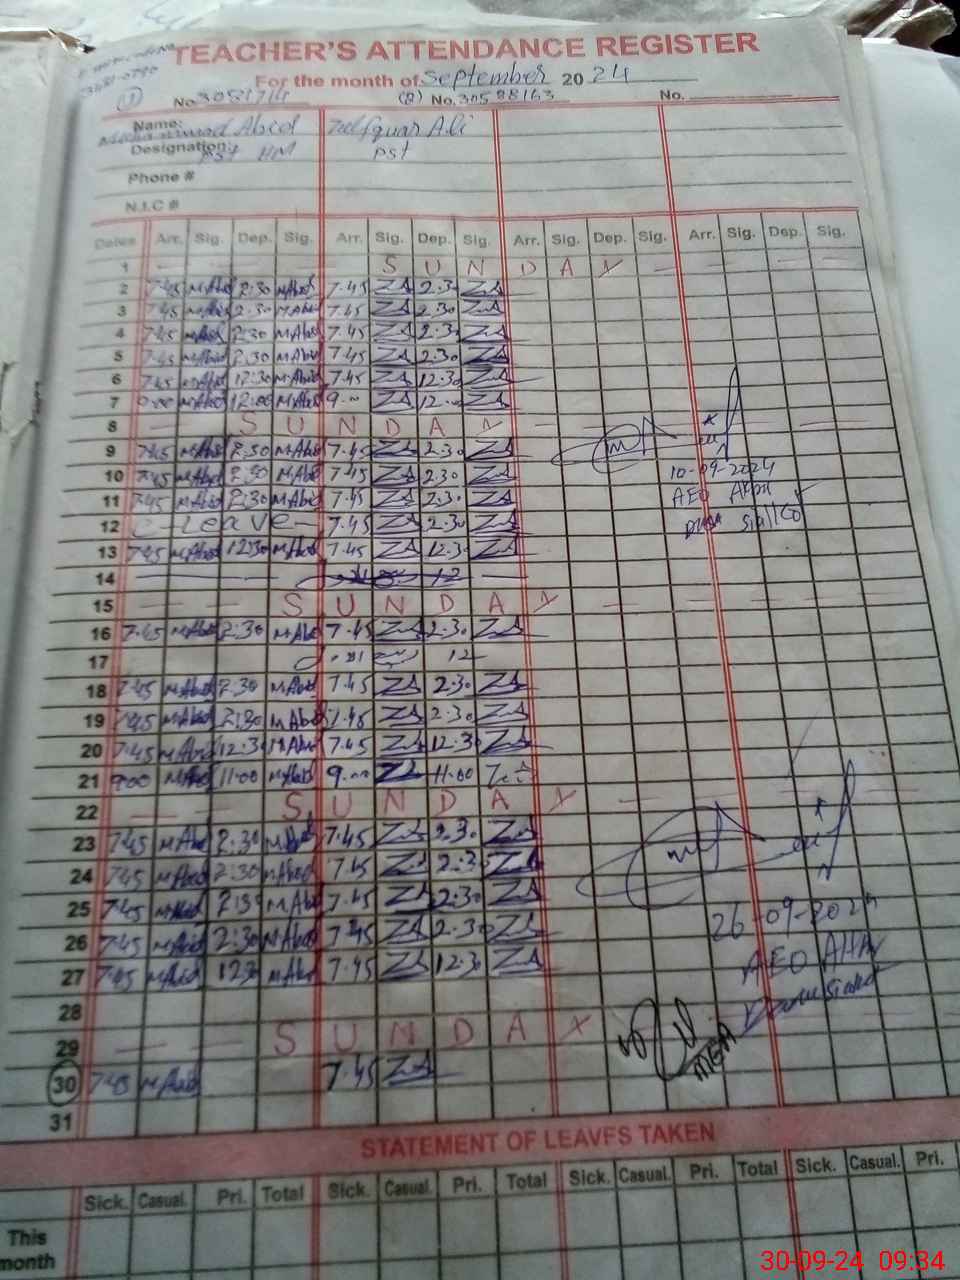 TEACHER'S ATTENDANCE REGISTER
For the month of September 2024
(1) No. 3081714 (2) No. 30588163 No.
Name: Muhammad Abid Zulfquar Ali
Designation: PST HM PST
Phone #
N.I.C #
Dates Arr. Sig. Dep. Sig. Arr. Sig. Dep. Sig. Arr. Sig. Dep. Sig. Arr. Sig. Dep. Sig.
1 SUNDAY
2 7.45 MAbid 2:30 MAbid 7.45 ZA 2.30 ZA
3 7.45 MAbid 2:30 MAbid 7.45 ZA 2.30 ZA
4 7.45 MAbid 2:30 MAbid 7.45 ZA 2.30 ZA
5 7.45 MAbid 2:30 MAbid 7.45 ZA 2.30 ZA
6 7.45 MAbid 12:30 MAbid 7.45 ZA 12.30 ZA
7 9.00 MAbid 12:00 MAbid 9.00 ZA 12.00 ZA
8 SUNDAY
9 7.45 MAbid 2:30 MAbid 7.45 ZA 2.30 ZA
10 7.45 MAbid 2:30 MAbid 7.45 ZA 2.30 ZA
10-09-2024
11 7.45 MAbid 2:30 MAbid 7.45 ZA 2.30 ZA
AEO
12 C-Leave 7.45 ZA 2.30 ZA
13 7.45 MAbid 12:30 MAbid 7.45 ZA 12.30 ZA
14
15 SUNDAY
16 7.45 MAbid 2:30 MAbid 7.45 ZA 2.30 ZA
17 12
18 7.45 MAbid 2:30 MAbid 7.45 ZA 2.30 ZA
19 7.45 MAbid 2:30 MAbid 7.45 ZA 2.30 ZA
20 7.45 MAbid 12:30 MAbid 7.45 ZA 12.30 ZA
21 9:00 MAbid 11:00 MAbid 9.00 ZA 11.00
22 SUNDAY
23 7.45 MAbid 2:30 MAbid 7.45 ZA 2.30 ZA
24 7.45 MAbid 2:30 MAbid 7.45 ZA 2:30 ZA
25 7.45 MAbid 2:30 MAbid 7.45 ZA 2:30 ZA
26 7.45 MAbid 2:30 MAbid 7.45 ZA 2.30 ZA
26-09-2024
27 7.45 MAbid 12:30 MAbid 7.45 ZA 12.30 ZA
AEO
28
29 SUNDAY
MEA
30 7.45 MAbid 7.45 ZA
31
STATEMENT OF LEAVES TAKEN
Sick. Casual. Pri. Total Sick. Casual. Pri. Total Sick. Casual. Pri. Total Sick. Casual. Pri.
This
month
30-09-24 09:34